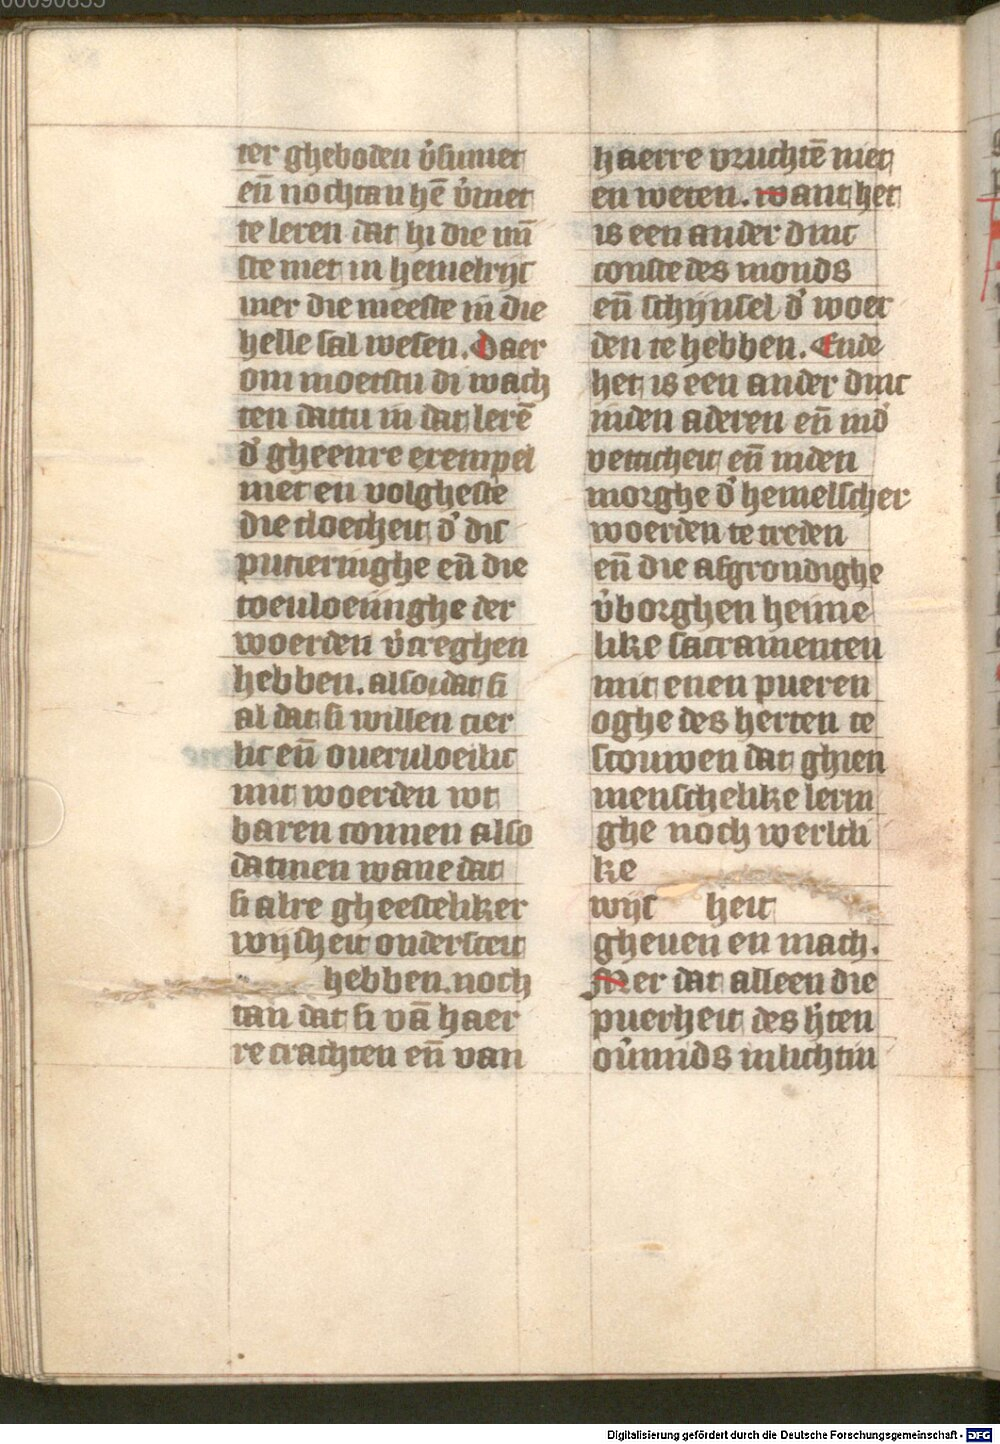 00090855
ter gheboden v̓sumet
en̄ nochtan hē v̓met
te leren dat hi die mī
ste niet in hemelrijc
mer die meeste in die
helle sal wesen. Daer
om moetstu di wach
ten dattu in dat lerē
d̓ gheenre exempel
niet en volgheste
die cloecheit d̓ dis
putieringhe en̄ die
toeuloeiinghe der
woerden v̓creghen
hebben. also dat si
al dat si willen cier
lic en̄ oueruloeilic
mit woerden wt
baren connen also
datmen wane dat
si alre gheesteliker
wijsheit ondersceit
hebben. noch
tan dat si vā haer
re crachten en̄ van
haerre vruchtē niet
en weten. want het
is een ander dinc
conste des monds
en̄ schijnsel d̓ woer
den te hebben. Ende
het is een ander dinc
inden aderen en̄ in d̓
vetticheit en̄ inden
morghe d̓ hemelscher
woerden te treden
en̄ die afgrondighe
v̓borghen heime
like sacramenten
mit enen pueren
oghe des herten te
scouwen dat ghien
menschelike lerin
ghe noch werltli
ke
wijs heit
gheuen en mach.
Mer dat alleen die
puerheit des h̓ten
ou̓mids inlichtin
Digitalisierung gefördert durch die Deutsche Forschungsgemeinschaft - DFG